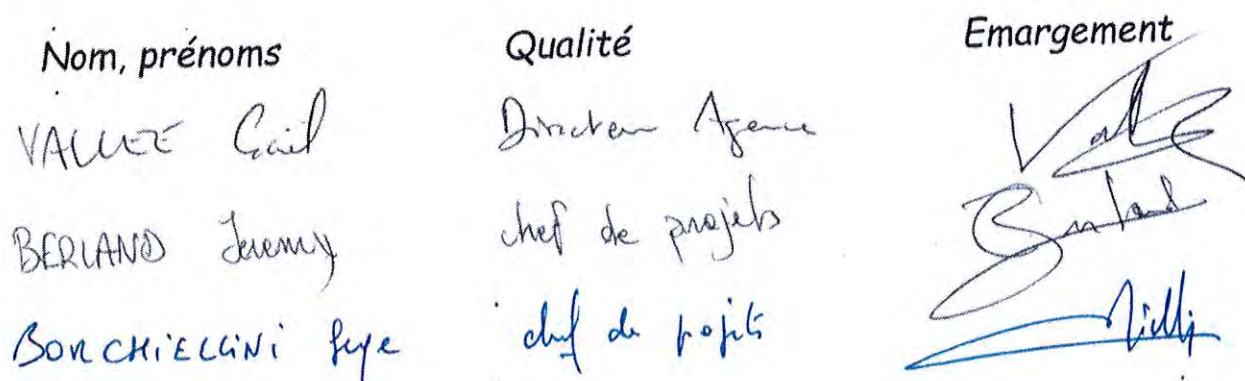 Nom, prénoms Qualité Emargement
VALLEE Gaël Directeur Agence
BERLAND Jeremy chef de projets
BORCHIELLINI Serge chef de projets